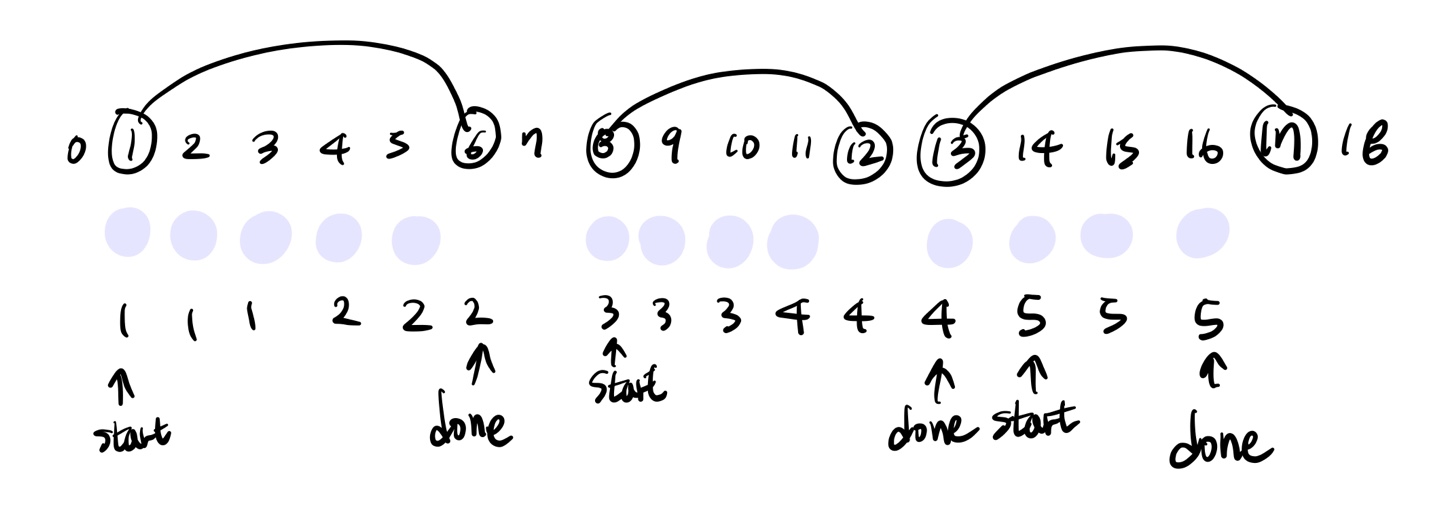 0 1 2 3 4 5 6 7 8 9 10 11 12 13 14 15 16 17 18
1 1 1 2 2 2 3 3 3 4 4 4 5 5 5
start done start done start done